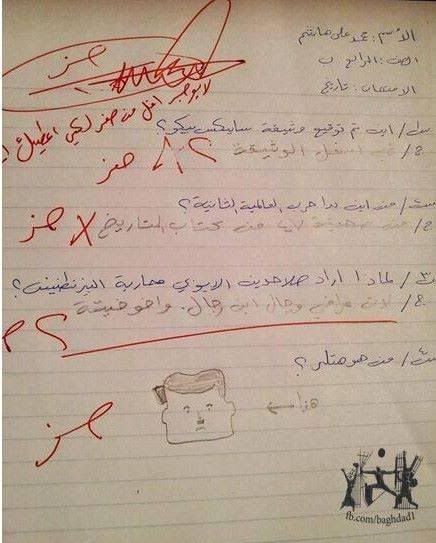 الأسم: محمد علي هاشم
الصف: الرابع ب
الامتحان: تاريخ
صفر
لا يوجد اقل من صفر لكي اعطيك
س١/ اين تم توقيع وثيقة سايكس بيكو؟
ج/ في اسفل الوثيقة
صفر
س٢/ من اين بدا حرب العالمية الثانية؟
ج/ من صفحة ٤٧ من كتاب التاريخ
صفر
س٣/ لماذا اراد صلاح الدين الايوبي محاربة البيزنطينين؟
ج/ لانه عراقي ورجال ابن رجال. واخو خيته
س٤/ من هو هتلر؟
هذا
صفر
fb.com/baghdad1